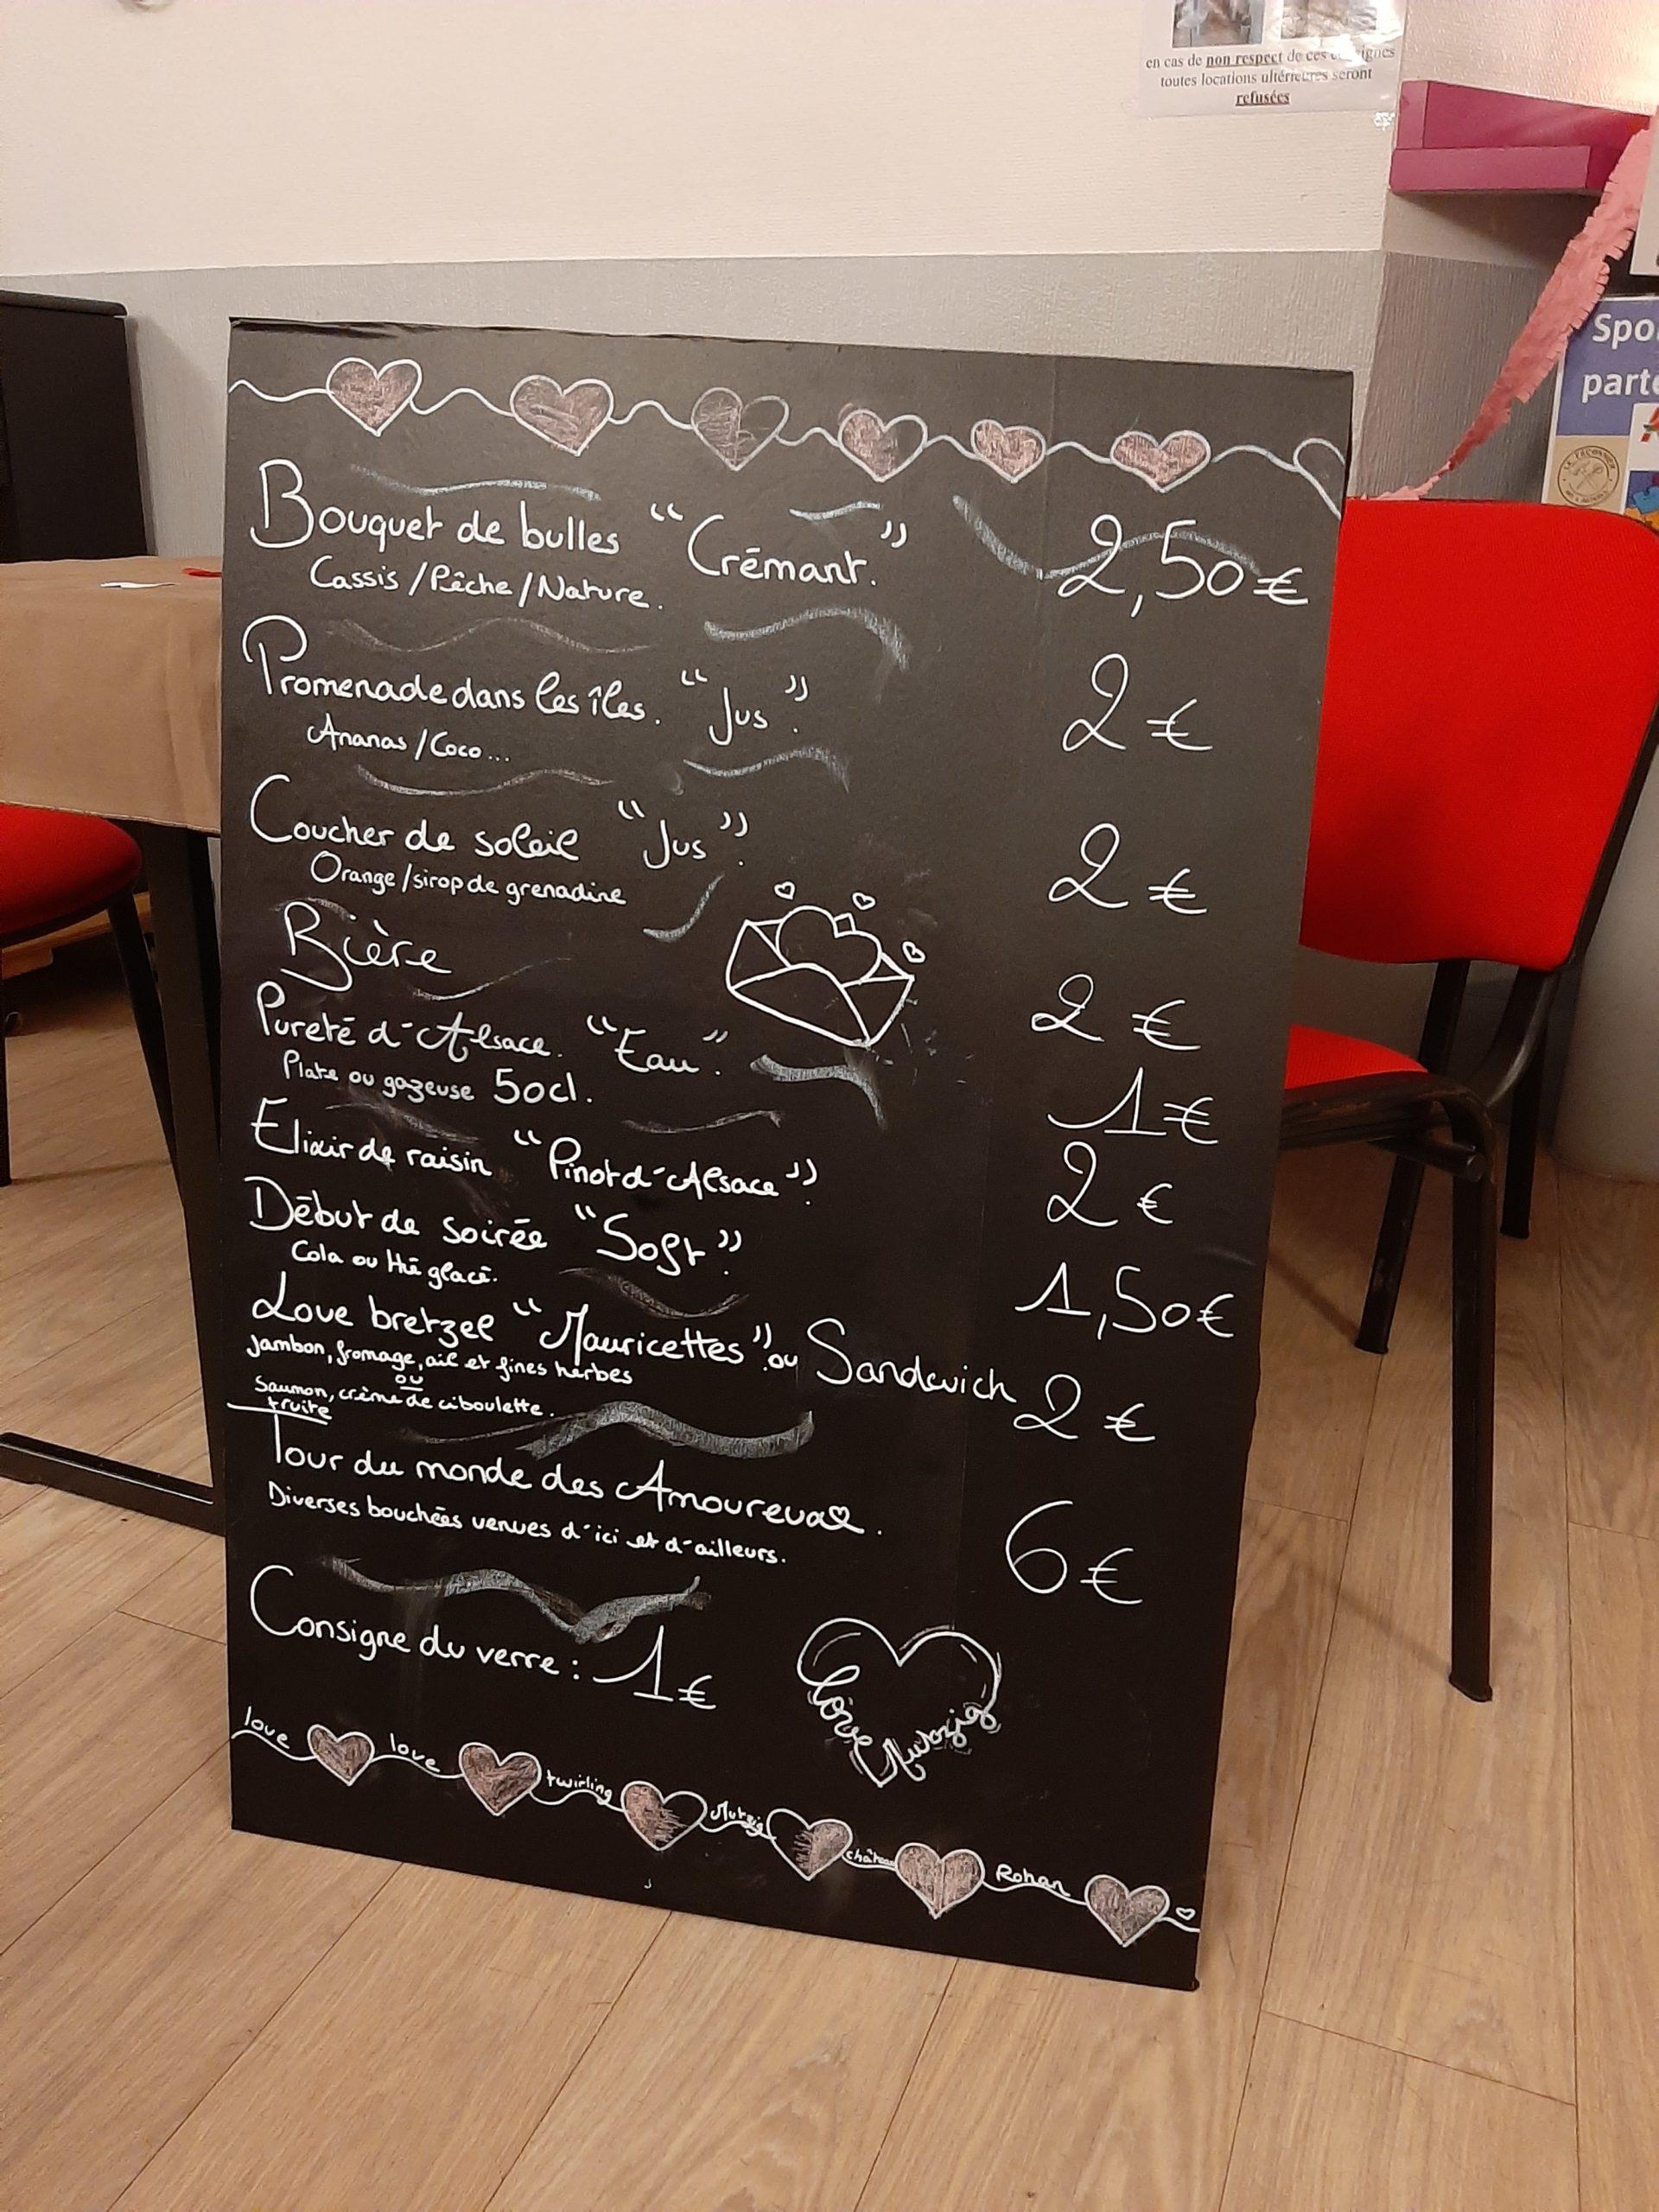 en cas de non respect de ces
toutes locations ultérieures seront
refusées
Spo
parte
Bouquet de bulles "Crémant." 2,50€
Cassis / Pêche / Nature.
Promenade dans les îles. "Jus". 2€
Ananas / Coco...
Coucher de soleil "Jus". 2€
Orange / sirop de grenadine
Bière 2€
Pureté d'Alsace. "Eau". 1€
Plate ou gazeuse 50cl.
Elixir de raisin "Pinot d'Alsace". 2€
Début de soirée "Soft". 1,50€
Cola ou thé glacé.
Love bretzel "Mauricettes". ou Sandwich 2€
Jambon, fromage, ail et fines herbes
ou
Saumon, crème de ciboulette.
truite
Tour du monde des Amoureux. 6€
Diverses bouchées venues d'ici et d'ailleurs.
Consigne du verre : 1€
love Mutzig
love love twirling Mutzig château Rohan